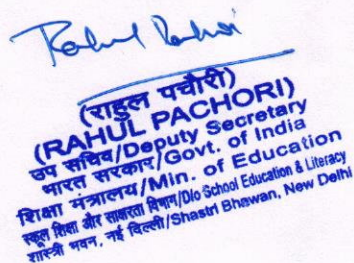 Rahul Pachori
(राहुल पचौरी)
(RAHUL PACHORI)
उप सचिव/Deputy Secretary
भारत सरकार/Govt. of India
शिक्षा मंत्रालय/Min. of Education
स्कूल शिक्षा और साक्षरता विभाग/D/o School Education & Literacy
शास्त्री भवन, नई दिल्ली/Shastri Bhawan, New Delhi